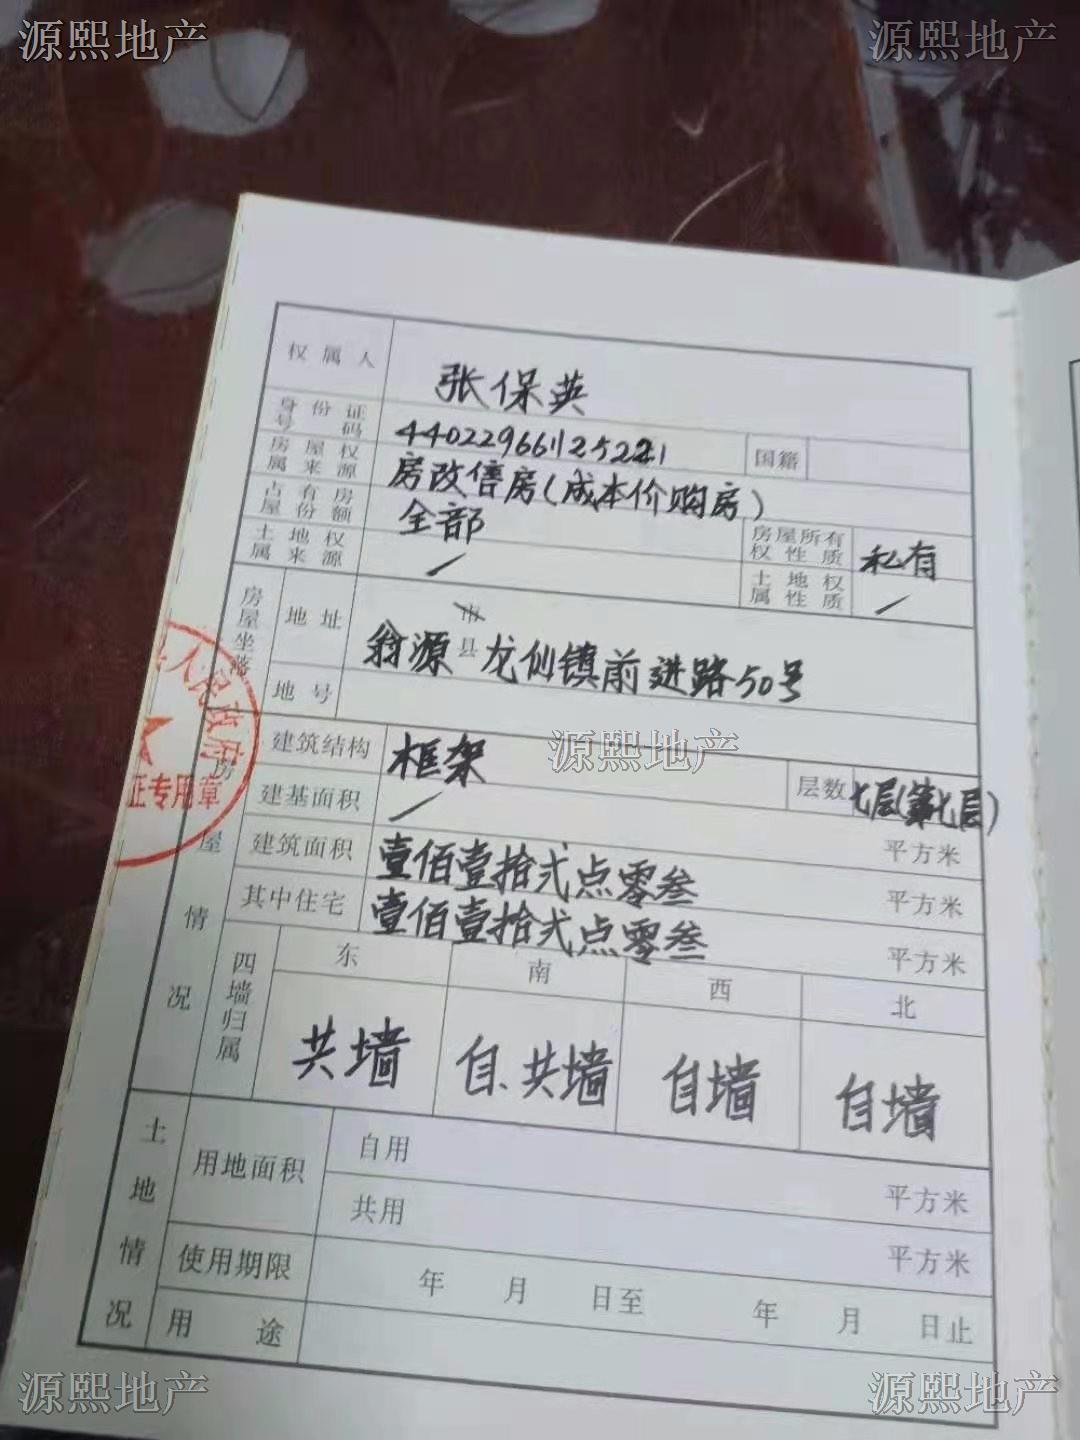 源熙地产 源熙地产
权属人 张保英
身份证号码 440229661125221 国籍
房屋权属来源 房改售房(成本价购房)
占有房屋份额 全部 房屋所有权性质 私有
土地权属来源 / 土地权属性质 /
房屋坐落 地址 市
翁源县龙仙镇前进路50号
地号
人民政府
证专用章
房屋情况 建筑结构 框架 层数 七层(第七层)
源熙地产
建基面积 / 平方米
建筑面积 壹佰壹拾弍点零叁 平方米
其中住宅 壹佰壹拾弍点零叁 平方米
四墙归属 东 南 西 北
共墙 自、共墙 自墙 自墙
土地情况 用地面积 自用 平方米
共用 平方米
使用期限 年 月 日至 年 月 日止
用途
源熙地产 源熙地产